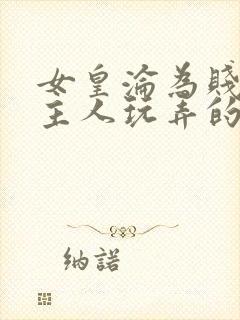 女皇淪為賤
主人玩弄的
納諾